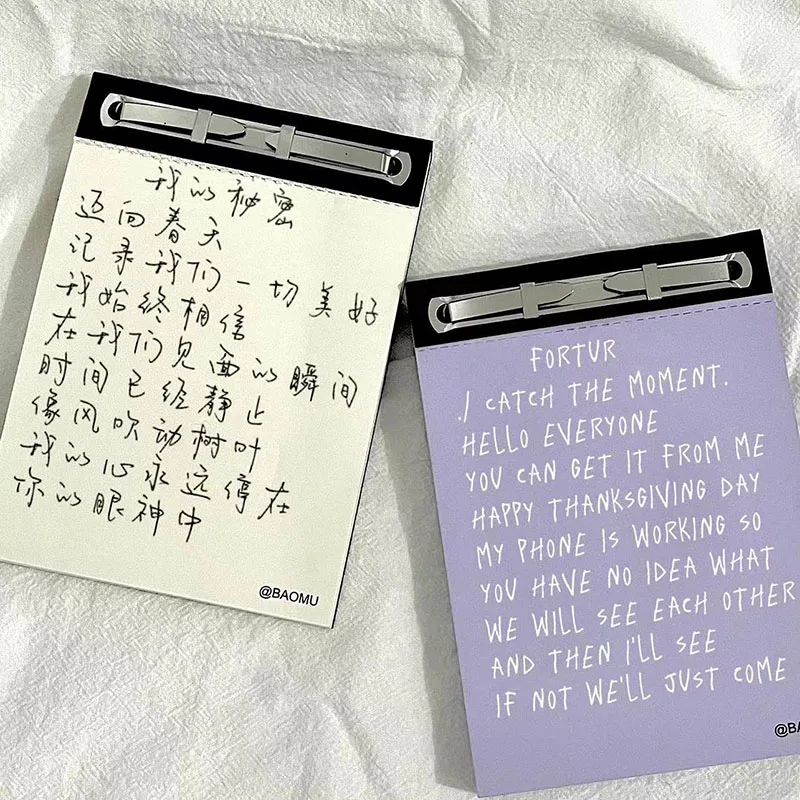 我的秘密
迈向春天
记录我们一切美好
我始终相信
在我们见面的瞬间
时间已经静止
像风吹动树叶
我的心永远停在
你的眼神中
@BAOMU
FORTUR
./ CATCH THE MOMENT.
HELLO EVERYONE
YOU CAN GET IT FROM ME
HAPPY THANKSGIVING DAY
MY PHONE IS WORKING SO
YOU HAVE NO IDEA WHAT
WE WILL SEE EACH OTHER
AND THEN I'LL SEE
IF NOT WE'LL JUST COME
@BA